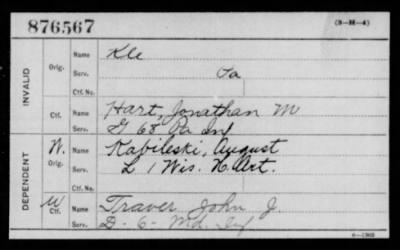 876567
(3-H-4)
INVALID
Orig.
Name Kle
Serv. Pa
Ctf. No.
Ctf.
Name Hart, Jonathan M
Serv. G 68 Pa Inf
DEPENDENT
W. Orig.
Name Kabileski, August
Serv. L 1 Wis. H. Art.
Ctf. No.
W Ctf.
Name Traver, John J.
Serv. D-6-Md. Inf